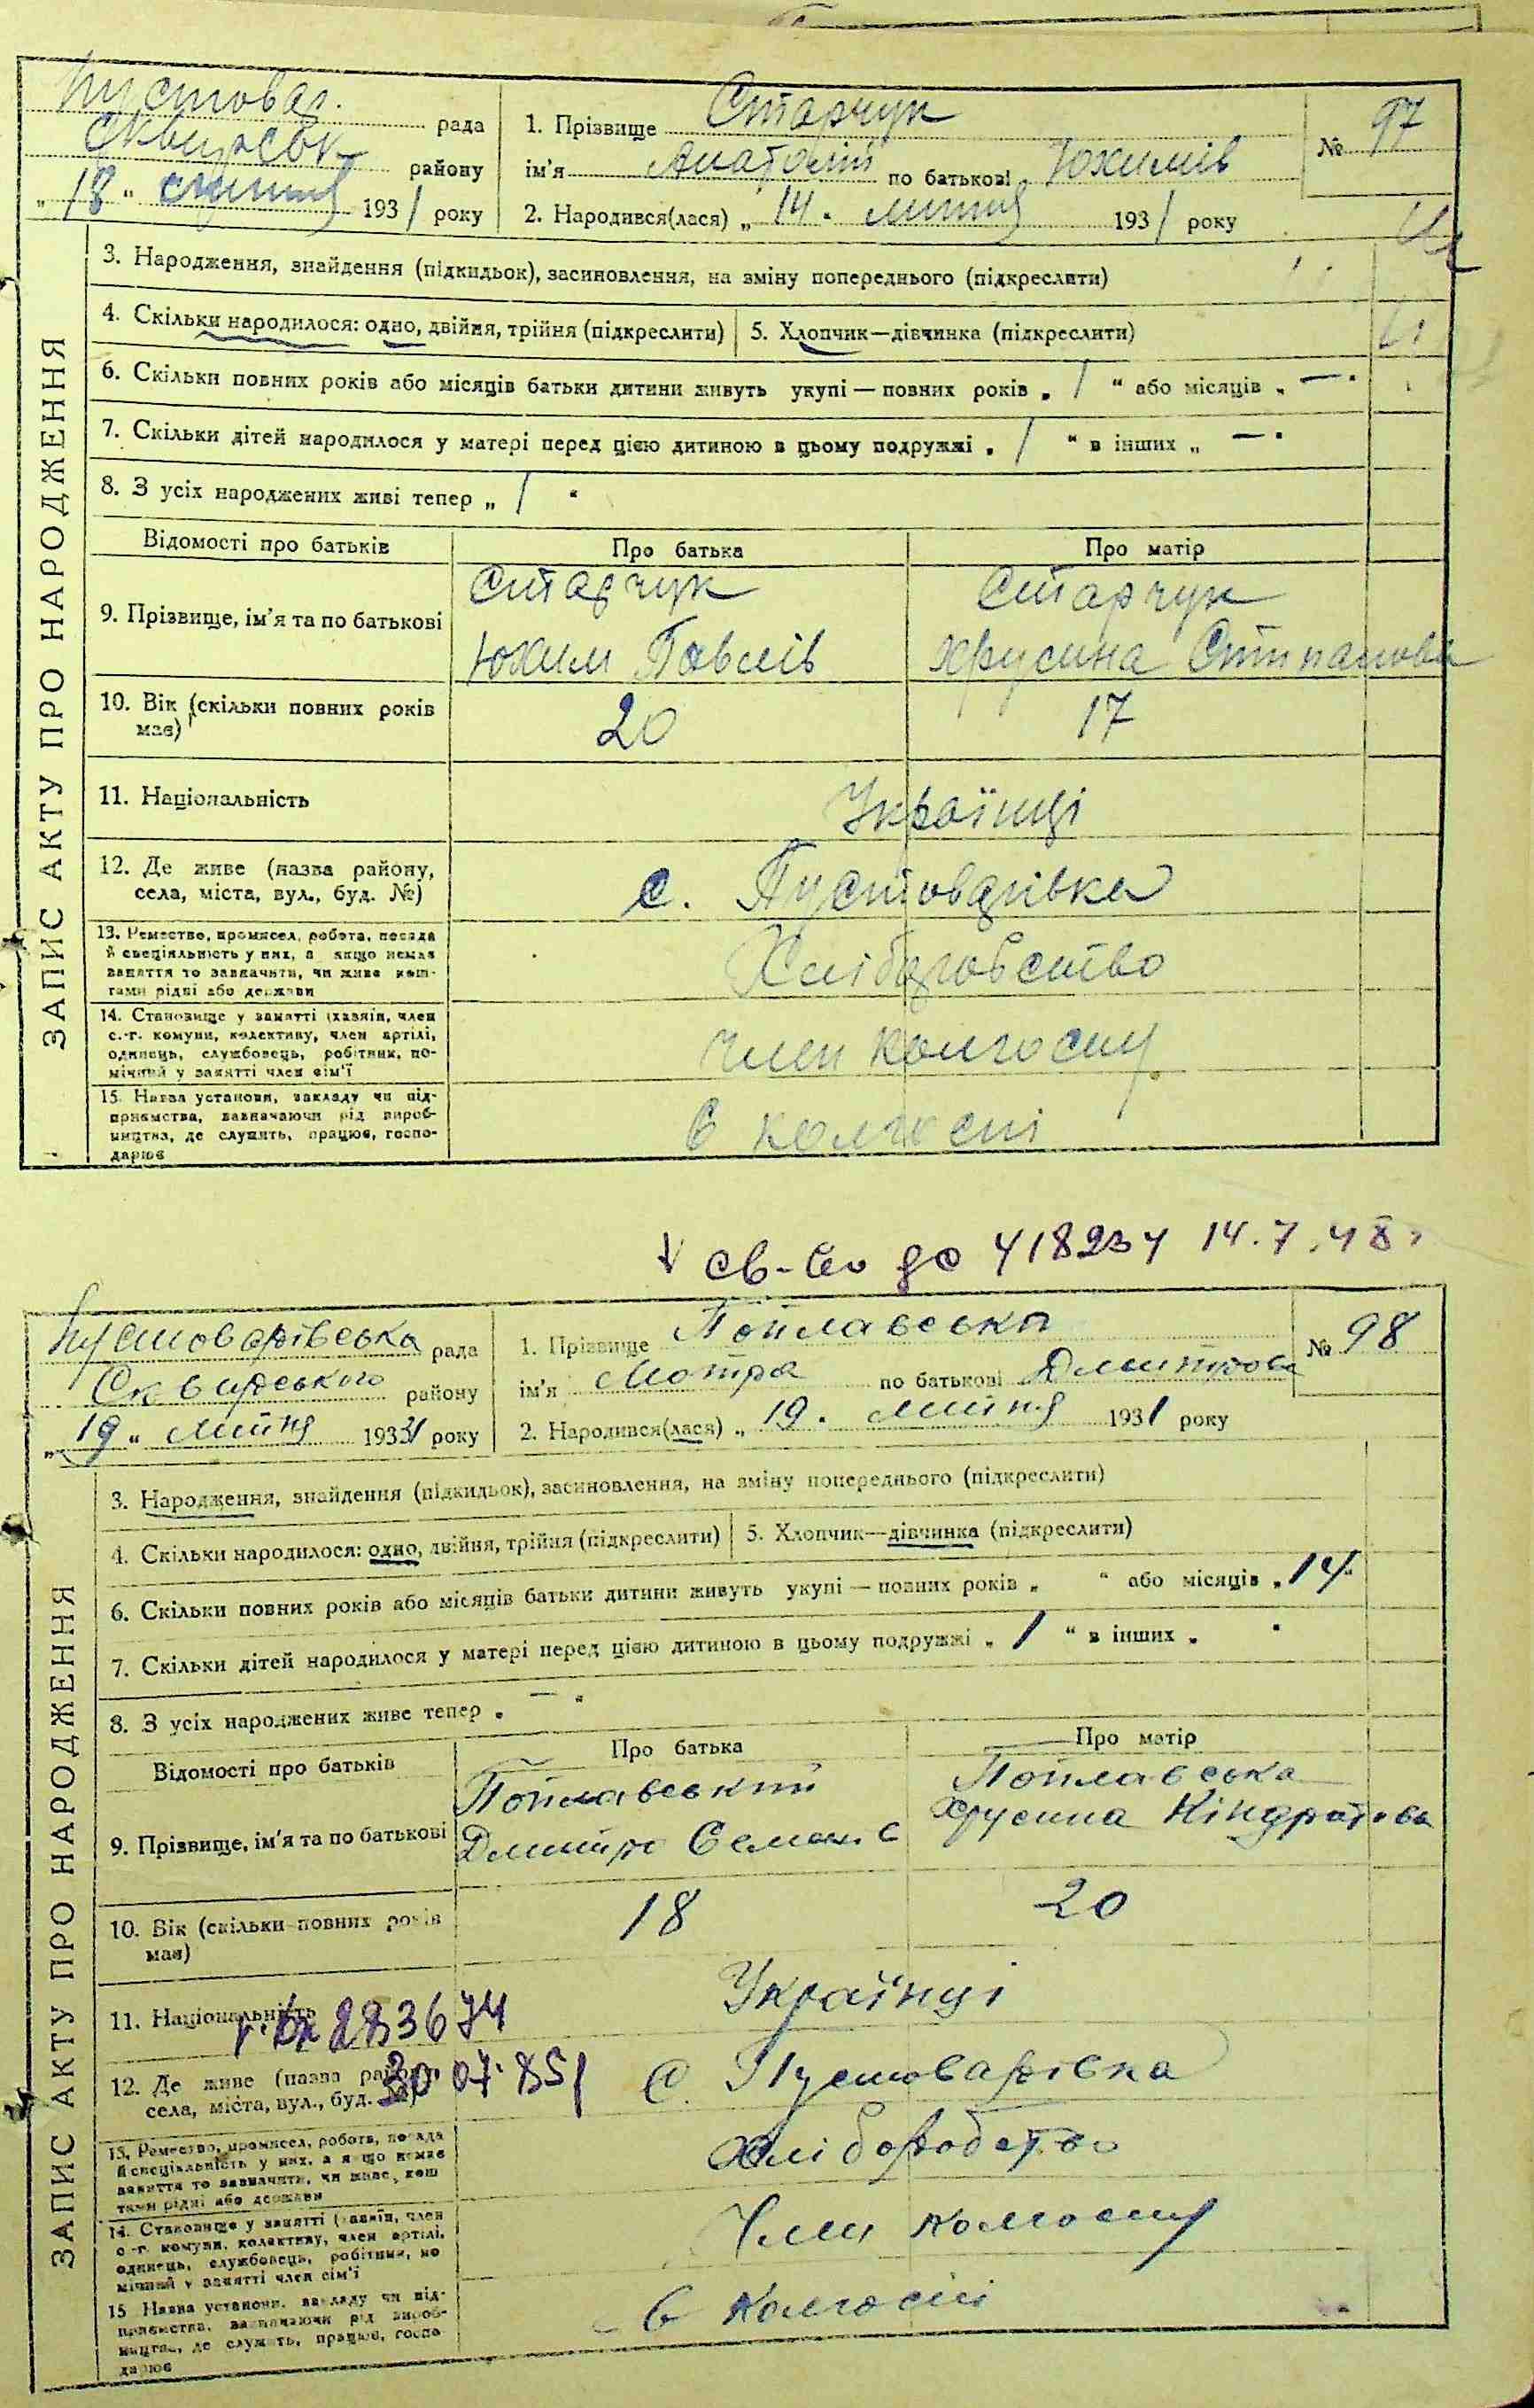 Пустовар. рада
Сквирськ району
„18“ липня 1931 року
1. Прізвище Старчук
ім'я Анатолій по батькові Юхимів
2. Народився(лася) „14“ липня 1931 року
№ 97
ЗАПИС АКТУ ПРО НАРОДЖЕННЯ
3. Народження, знайдення (підкидьок), засиновлення, на зміну попереднього (підкреслити)
4. Скільки народилося: одно, двійня, трійня (підкреслити) 5. Хлопчик—дівчинка (підкреслити)
6. Скільки повних років або місяців батьки дитини живуть укупі — повних років „ 1 “ або місяців „ — “
7. Скільки дітей народилося у матері перед цією дитиною в цьому подружжі „ 1 “ в інших „ — “
8. З усіх народжених живі тепер „ 1 “
Відомості про батьків Про батька Про матір
9. Прізвище, ім'я та по батькові
Старчук
Юхим Павлів
Старчук
Хрусина Степанова
10. Вік (скільки повних років має) 20 17
11. Національність Українці
12. Де живе (назва району,
села, міста, вул., буд. №)
с. Пустоварівка
13. Ремество, промисел, робота, посада
й спеціяльність у них, а якщо немає
заняття то зазначити, чи живе кош-
тами рідні або держави
Хліборобство
14. Становище у занятті (хазяїн, член
с.-г. комуни, колективу, член артілі,
одинець, службовець, робітник, по-
мічний у занятті член сім'ї
член колгоспу
15. Назва установи, закладу чи під-
приємства, зазначаючи рід вироб-
ництва, де служить, працює, госпо-
дарює
в колгоспі
св-во 418234 14.7.48
Пустоварівська рада
Сквирського району
„19“ липня 1931 року
1. Прізвище Поплавська
ім'я Мотря по батькові Дмитрова
2. Народився(лася) „19“ липня 1931 року
№ 98
ЗАПИС АКТУ ПРО НАРОДЖЕННЯ
3. Народження, знайдення (підкидьок), засиновлення, на зміну попереднього (підкреслити)
4. Скільки народилося: одно, двійня, трійня (підкреслити) 5. Хлопчик—дівчинка (підкреслити)
6. Скільки повних років або місяців батьки дитини живуть укупі — повних років „ “ або місяців „14“
7. Скільки дітей народилося у матері перед цією дитиною в цьому подружжі „ 1 “ в інших „ “
8. З усіх народжених живе тепер „ — “
Відомості про батьків Про батька Про матір
9. Прізвище, ім'я та по батькові
Поплавський
Дмитро Семенів
Поплавська
Хрусина Кіндратова
10. Вік (скільки повних років
має)
18 20
11. Національність Українці
283674
30 07 85
12. Де живе (назва району,
села, міста, вул., буд. №)
с. Пустоварівка
13. Ремество, промисел, робота, посада
й спеціяльність у них, а якщо немає
заняття то зазначити, чи живе кош
тами рідні або держави
Хліборобство
14. Становище у занятті (хазяїн, член
с.-г. комуни, колективу, член артілі,
одинець, службовець, робітник, по
мічний у занятті член сім'ї
Член колгоспу
15 Назва установи, закладу чи під-
приємства, зазначаючи рід вироб-
ництва, де служить, працює, госпо-
дарює
в колгоспі